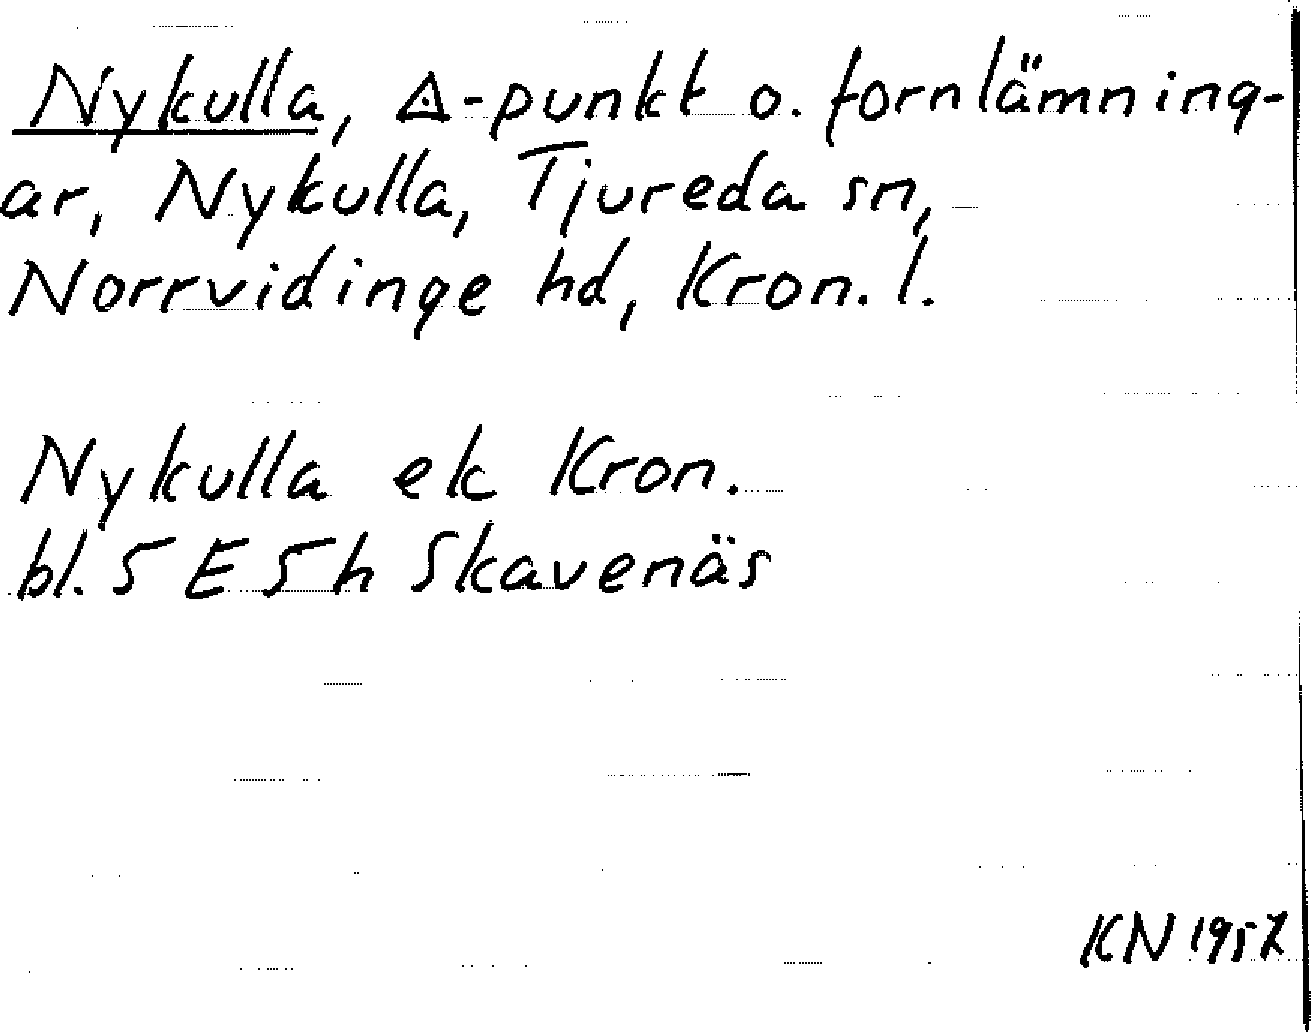 Nykulla, △-punkt o. fornlämning-
ar, Nykulla, Tjureda sn,
Norrvidinge hd, Kron. l.
Nykulla ek Kron.
bl. 5 E 5 h Skavenäs
KN 1957